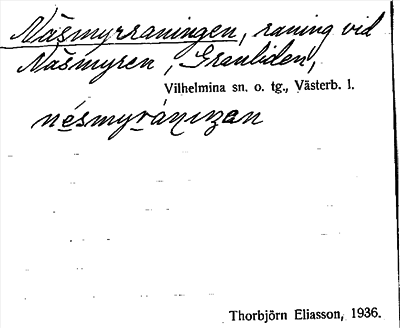 Näsmyrraningen, raning vid
Näsmyren, Granliden,
Vilhelmina sn. o. tg., Västerb. l.
nésmyránızan
Thorbjörn Eliasson, 1936.